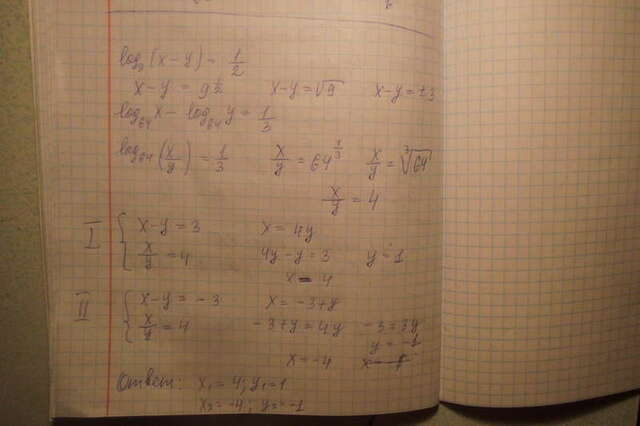 log₉(x-y) = 1/2
x-y = 9^½ x-y = √9 x-y = ±3
log₆₄x - log₆₄y = 1/3
log₆₄(x/y) = 1/3 x/y = 64^(1/3) x/y = ∛64
x/y = 4
I { x-y = 3 x = 4y
x/y = 4 4y-y = 3 y = 1
x = 4
II { x-y = -3 x = -3+y
x/y = 4 -3+y = 4y -3 = 3y
y = -1
x = -4
Ответ: x₁ = 4; y₁ = 1
x₂ = -4; y₂ = -1